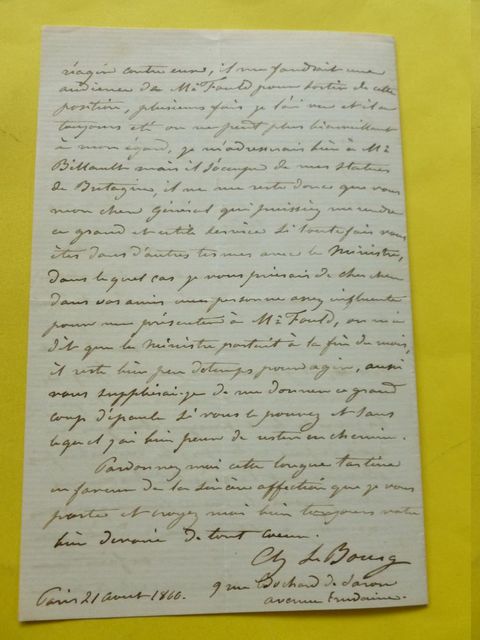 réagir contre eux, il me faudrait une
audience de Mr Fould pour sortir de cette
position, plusieurs fois je l'ai vu et il a
toujours été on ne peut plus bienveillant
à mon égard, je m'adresserais bien à Mr
Billault mais il s'occupe de mes statues
de Bretagne, il ne me reste donc que vous
mon cher Général qui puissiez me rendre
ce grand et utile service si toutefois vous
êtes dans d'autres termes avec le Ministre,
dans lequel cas je vous prierais de chercher
dans vos amis une personne assez influente
pour me présenter à Mr Fould, on m'a
dit que le Ministre partait à la fin du mois,
il reste bien peu de temps pour agir, aussi
vous supplierai-je de me donner ce grand
coup d'épaule si vous le pouvez et sans
lequel j'ai bien peur de rester en chemin.
Pardonnez moi cette longue tartine
en faveur de la sincère affection que je vous
porte et croyez moi bien toujours votre
bien dévoué de tout coeur.
Ch Le Bourg
9 rue Bochard de Saron
avenue Trudaine.
Paris 21 aout 1860.